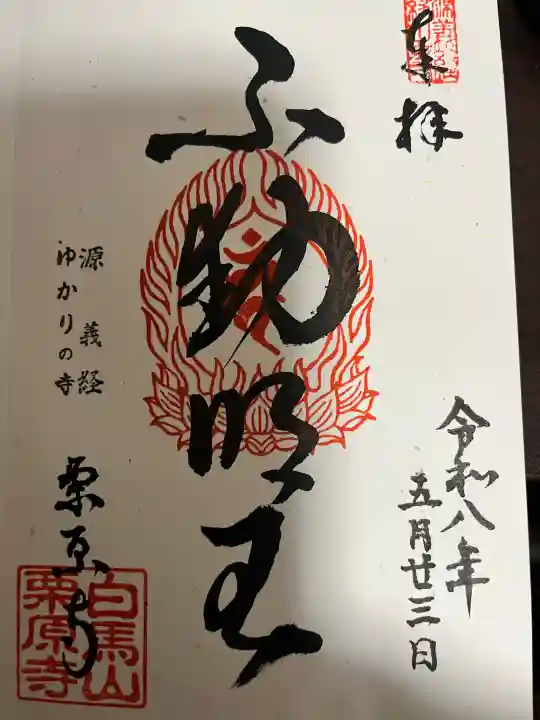 奉拝
令和八年
五月廿三日
不動明王
源義経
ゆかりの寺
栗原寺
白馬山
栗原寺